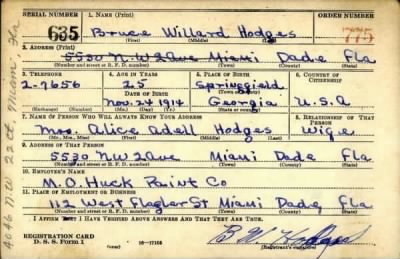 SERIAL NUMBER 1. NAME (Print) ORDER NUMBER
635 Bruce Willard Hodges 775
(First) (Middle) (Last)
2. ADDRESS (Print)
5530 N.W 2 Ave Miami Dade Fla
(Number and street or R. F. D. number) (Town) (County) (State)
3. TELEPHONE 4. AGE IN YEARS 5. PLACE OF BIRTH 6. COUNTRY OF CITIZENSHIP
2-7656 25 Springfield
DATE OF BIRTH (Town or county)
Nov. 24 1914 Georgia U.S.A
(Exchange) (Number) (Mo.) (Day) (Yr.) (State or country)
7. NAME OF PERSON WHO WILL ALWAYS KNOW YOUR ADDRESS 8. RELATIONSHIP OF THAT PERSON
Mrs. Alice Adell Hodges Wife
(Mr., Mrs., Miss) (First) (Middle) (Last)
9. ADDRESS OF THAT PERSON
5530 N.W 2 Ave Miami Dade Fla
(Number and street or R. F. D. number) (Town) (County) (State)
10. EMPLOYER'S NAME
Huck Paint Co
11. PLACE OF EMPLOYMENT OR BUSINESS
112 West Flagler St Miami Dade Fla
(Number and street or R. F. D. number) (Town) (County) (State)
I AFFIRM THAT I HAVE VERIFIED ABOVE ANSWERS AND THAT THEY ARE TRUE.
REGISTRATION CARD
D. S. S. Form 1 16-17105 (Registrant's signature)
4046 N.W 22 ct Miami Fla